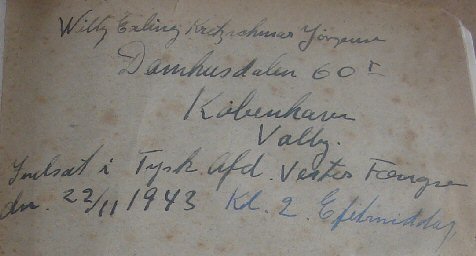 Willy Erling Kretzschmar Jörgensen
Damhusdalen 60
København
Valby.
Indsat i Tysk Afd. Vestre Fængsel
dn. 22/11 1943 Kl. 2. Eftermiddag